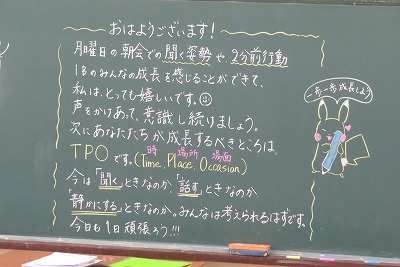 おはようございます!
月曜日の朝会での聞く姿勢や、2分前行動
1Bのみんなの成長を感じることができて、
私は、とっても嬉しいです。
声をかけあって、意識し続けましょう。
次にあなたたちが成長するべきところは、
時 場所 場面
TPOです。(Time, Place, Occasion)
今は「聞く」ときなのか、「話す」ときなのか
「静かにする」ときなのか。みんなは考えられるはずです。
今日も1日頑張ろう!!!
一歩一歩成長しよう